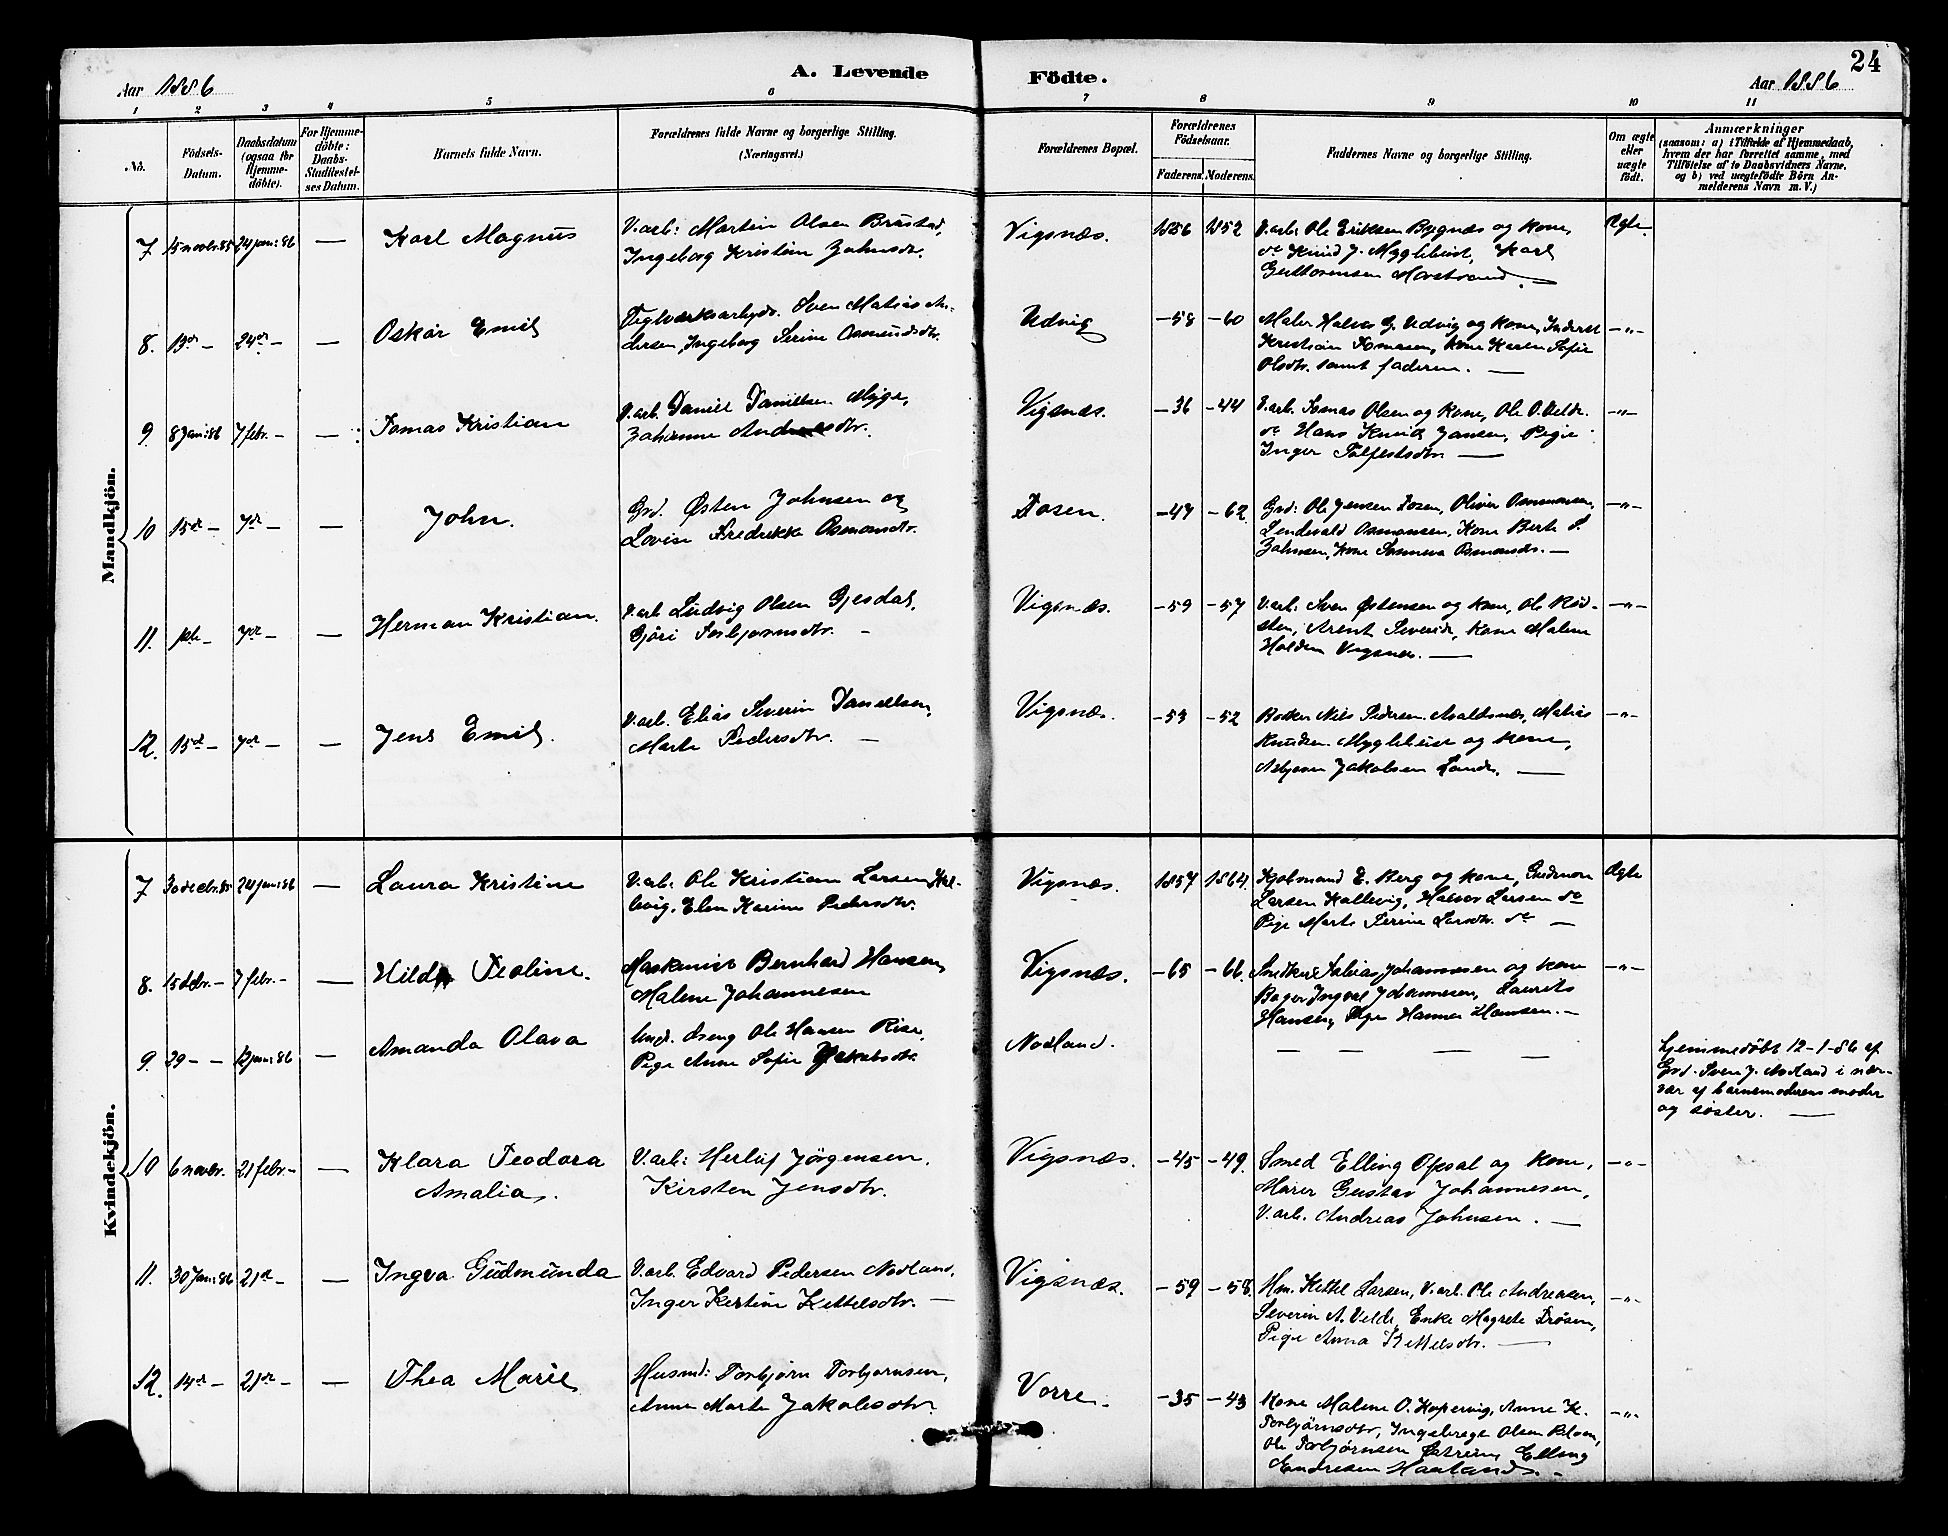 24
A. Levende Födte.
Aar 1886
Aar 1886
1 2 3 4 5 6 7 8 9 10 11
No.
Födsels-Datum.
Daabsdatum (ogsaa for Hjemme-döbte).
For Hjemme-döbte: Daabs-Stadfæstel-ses Datum.
Barnets fulde Navn.
Forældrenes fulde Navne og borgerlige Stilling.
(Næringsvei.)
Forældrenes Bopæl.
Forældrenes Födselsaar.
Faderens. Moderens.
Faddernes Navne og borgerlige Stilling.
Om ægte eller uægte födt.
Anmærkninger
(saasom: a) i Tilfælde af Hjemmedaab,
hvem der har forrettet samme, med
Tilföielse af to Daabsvidners Navne,
og b) ved uægtefödte Börn An-
melderens Navn m. V.)
Mandkjön.
7 15 novbr. 85 24 jan: 86 — Karl Magnus
V.arb: Martin Olsen Brustad,
Ingeborg Kristine Johnsdtr.
Vigsnæs. 1856 1852
V.arb. Ole Eriksen Bygnæs og Kone,
do Knud J. Myglebust, Karl
Guttormsen
Ægte.
8. 19de — 24de — — Oskar Emil
Teglværksarbeidr. Sven Matias An-
dersen, Ingeborg Serine Osmundsdtr.
Udvig — 58 — 60
Maler Halvor G. Udvig og Kone,
Kristian Tomasen, Kone Karen Sofie
Olsdtr. samt faderen. —
—"—
9 8 jan: 86 7 febr. — — Tomas Kristian
V.arb. Daniel Danielsen Myge,
Johanne Andreasdtr.
Vigsnæs. — 36 — 44
V.arb. Tomas Olsen og Kone, Ole O. Velde.
do Hans Knud Jansen, Pige
Inger Tolfestsdtr. —
—"—
10 15de — 7de — — John.
Grd. Østen Johnsen og
Lovise Fredrikke Osmondsdtr.
Dosen. — 47 — 62
Grd: Ole Jensen Dosen, Oliver Osmonsen,
Lendevald Osmonsen, Kone Berte S.
Johnsen, Kone Osmonds. —
—"—
11. — 7de — — Herman Kristian.
V.arb Ludvig Olsen Gjesdal,
Gjøri Torbjørnsdtr. —
Vigsnæs. — 59 — 57
V.arb: Sven Østensen og Kone, Ole Rød-
sten, Arent Severids, Kone Malene
Holden Vigsnæs. —
—"—
12. 15de — 7de — — Jens Emil.
V.arb. Elias Severin Danielsen,
Marte Pedersdtr. —
Vigsnæs. — 53 — 52
Bødker Nils Pedersen Avaldsnæs, Matias
Knudsen Myglebust og Kone,
Asbjørn Jakobsen Lande. —
—"—
Kvindekjön.
7 30 decbr. 85 24 jan: 86 — Laura Kristine
V.arb: Ole Kristian Larsen Kal-
levig, Elen Karine Pedersdtr.
Vigsnæs. 1857 1864.
Kjøbmand E. Berg og Kone, Gudmon
Larsen Kallevig, Halvor Larsen do
Pige Marte Serine Larsdtr. do —
Ægte
8. 15 decbr. — 7 febr. — — Hilda Teoline.
Maskinist Bernhard Hansen,
Malene Johannesen
Vigsnæs. — 65 — 66.
Snedker Tobias Johannesen og Kone
Bager Ingval Johannesen, Laurits
Hansen, Pige Hanna Hansen. —
—"—
9. 29 — — 12 jan: 86 — Amanda Olava
Ungd. dreng Ole Hansen Rise,
Pige Anne Sofie Jakobsdtr.
Nodland. — — — —
hjemmedøbt 12-1-86 af
Grd. Sven J. Nodland i nær-
vær af barnemoderens moder
og søster. —
10 6 novbr. 21 febr. — — Klara Teodora
Amalia.
V.arb: Herluf Jörgensen.
Kirsten Jensdtr.
Vigsnæs. — 45 — 49.
Smed Elling Opsal og Kone,
Murer Gustav Johannesen,
V.arb. Andreas Johnsen. —
—"—
11. 30 jan: 86 21de — — Ingva Gudmunda
V.arb. Edvard Pedersen Nodland,
Inger Kirstine Kettelsdtr. —
Vigsnæs. — 59 — 58.
Hm. Kettel Larsen, V.arb. Ole Andreasen,
Severin A. Velde, Enke Magrete Drøsen,
Pige Anna Kettelsdtr. —
—"—
12. 14de — 21de — — Thea Marie
Husmd: Torbjörn Torbjørnsen,
Anne Marte Jakobsdtr.
Vorre. — 35 — 43
Kone Malene O. Kopervig, Anne K.
Torbjørnsdtr, Ingebregt Olsen
Ole Torbjørnsen Elling
Endresen Haaland. —
—"—